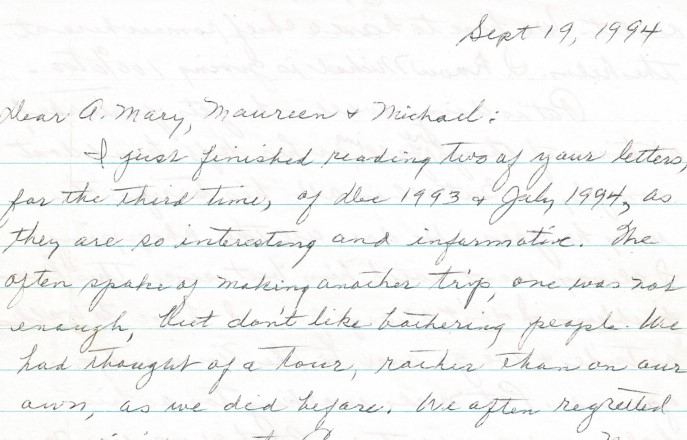 Sept 19, 1994
Dear A. Mary, Maureen & Michael:
I just finished reading two of your letters,
for the third time, of Dec 1993 & July 1994, as
they are so interesting and informative. We
often spoke of making another trip, one was not
enough, but don't like bothering people. We
had thought of a tour, rather than on our
own, as we did before. We often regretted